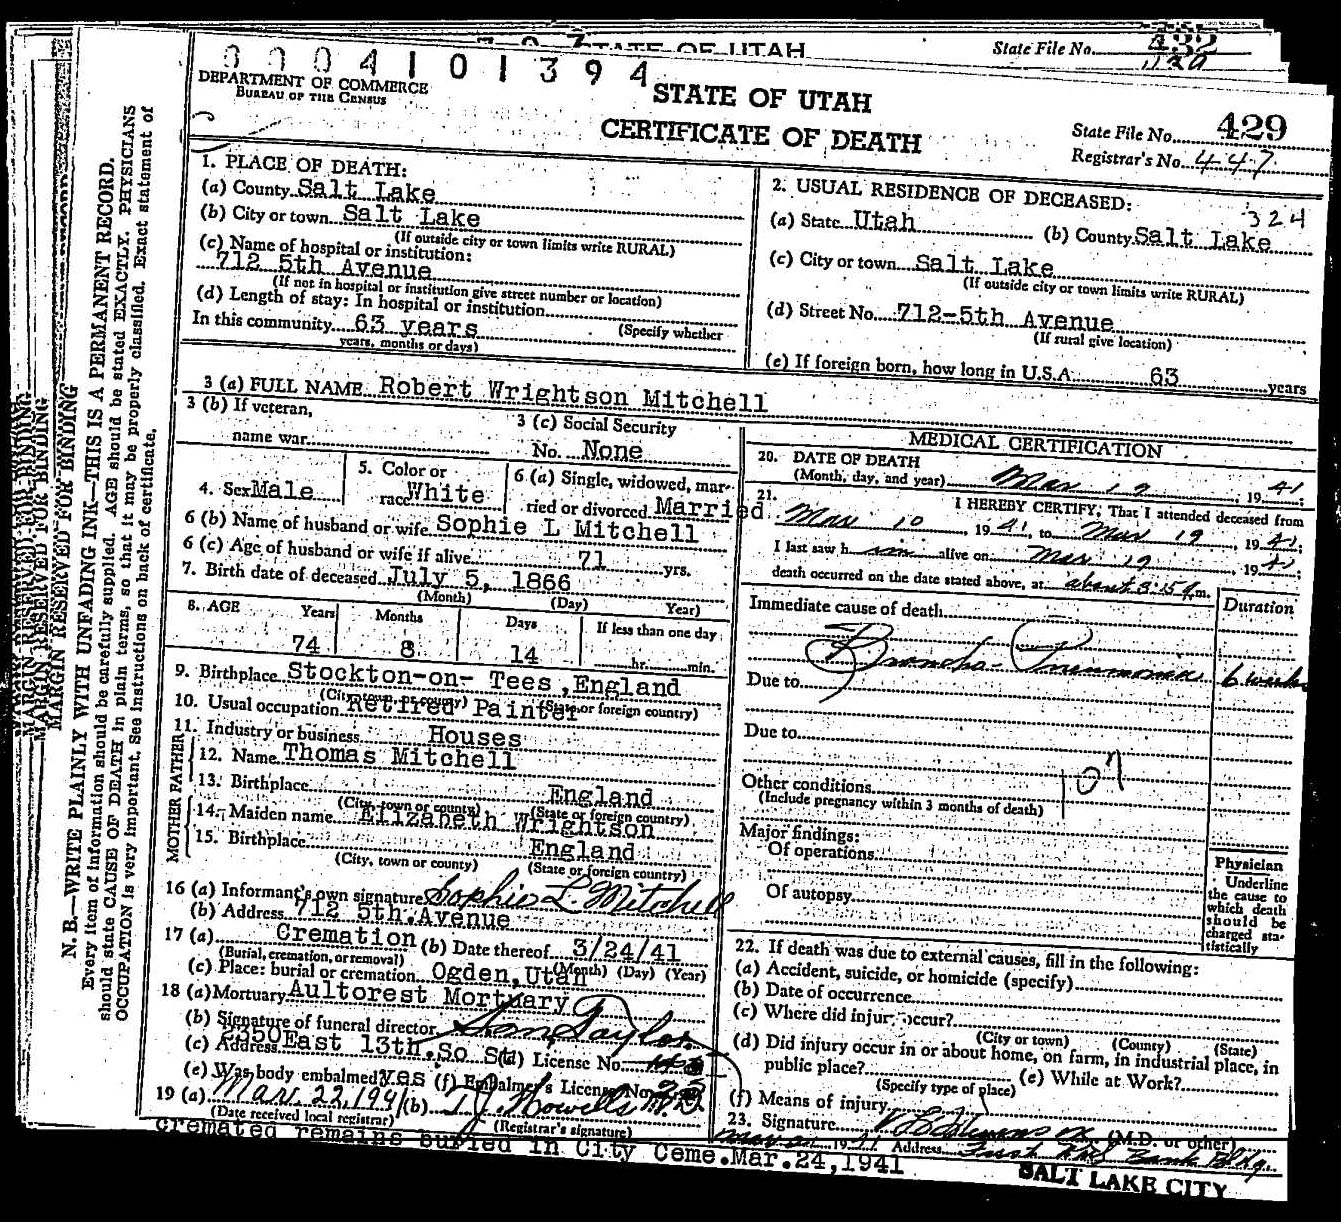 STATE OF UTAH
State File No. 432
0004101394
DEPARTMENT OF COMMERCE
BUREAU OF THE CENSUS
STATE OF UTAH
CERTIFICATE OF DEATH
State File No. 429
Registrar's No. 447
1. PLACE OF DEATH:
(a) County Salt Lake
(b) City or town Salt Lake
(If outside city or town limits write RURAL)
(c) Name of hospital or institution:
712 5th Avenue
(If not in hospital or institution give street number or location)
(d) Length of stay: In hospital or institution
In this community 63 years (Specify whether
years, months or days)
2. USUAL RESIDENCE OF DECEASED:
324
(a) State Utah (b) County Salt Lake
(c) City or town Salt Lake
(If outside city or town limits write RURAL)
(d) Street No. 712-5th Avenue
(If rural give location)
(e) If foreign born, how long in U.S.A. 63 years
3 (a) FULL NAME Robert Wrightson Mitchell
3 (b) If veteran,
name war
3 (c) Social Security
No. None
4. Sex Male
5. Color or
race White
6 (a) Single, widowed, mar-
ried or divorced Married
6 (b) Name of husband or wife Sophie L Mitchell
6 (c) Age of husband or wife if alive 71 yrs.
7. Birth date of deceased July 5, 1866
(Month) (Day) Year)
8. AGE Years Months Days If less than one day
74 8 14 hr. min.
9. Birthplace Stockton-on- Tees, England
(City, town or county) (State or foreign country)
10. Usual occupation Retired Painter
11. Industry or business Houses
FATHER
12. Name Thomas Mitchell
13. Birthplace England
(City, town or county) (State or foreign country)
MOTHER
14. Maiden name Elizabeth Wrightson
15. Birthplace England
(City, town or county) (State or foreign country)
16 (a) Informant's own signature Sophie L Mitchell
(b) Address 712 5th. Avenue
17 (a) Cremation (b) Date thereof 3/24/41
(Burial, cremation, or removal) (Month) (Day) (Year)
(c) Place: burial or cremation Ogden, Utah
18 (a) Mortuary Aultorest Mortuary
(b) Signature of funeral director Taylor
(c) Address East 13th. So St (d) License No.
(e) Was body embalmed? yes (f) Embalmer's License No.
19 (a) Mar. 22, 1941 (b) T.J. Howells M.D.
(Date received local registrar) (Registrar's signature)
cremated remains buried in City Ceme. Mar. 24, 1941
MEDICAL CERTIFICATION
20. DATE OF DEATH
(Month, day, and year) Mar 19, 1941;
21. I HEREBY CERTIFY, That I attended deceased from
Mar 10, 1941, to Mar 19, 1941;
I last saw him alive on Mar 19, 1941;
death occurred on the date stated above, at about 3:15 m.
Duration
Immediate cause of death
Broncho-Pneumonia 6 weeks
Due to
Due to
Other conditions
(Include pregnancy within 3 months of death)
107
Major findings:
Of operations
Of autopsy
Physician
Underline
the cause to
which death
should be
charged sta-
tistically
22. If death was due to external causes, fill in the following:
(a) Accident, suicide, or homicide (specify)
(b) Date of occurrence
(c) Where did injury occur?
(City or town) (County) (State)
(d) Did injury occur in or about home, on farm, in industrial place, in
public place? (e) While at Work?
(Specify type of place)
(f) Means of injury
23. Signature (M.D. or other)
Address First Natl Bank Bldg.
SALT LAKE CITY
MARGIN RESERVED FOR BINDING
MARGIN RESERVED FOR BINDING
N. B.—WRITE PLAINLY WITH UNFADING INK—THIS IS A PERMANENT RECORD.
Every item of information should be carefully supplied. AGE should be stated EXACTLY. PHYSICIANS
should state CAUSE OF DEATH in plain terms, so that it may be properly classified. Exact statement of
OCCUPATION is very important. See instructions on back of certificate.